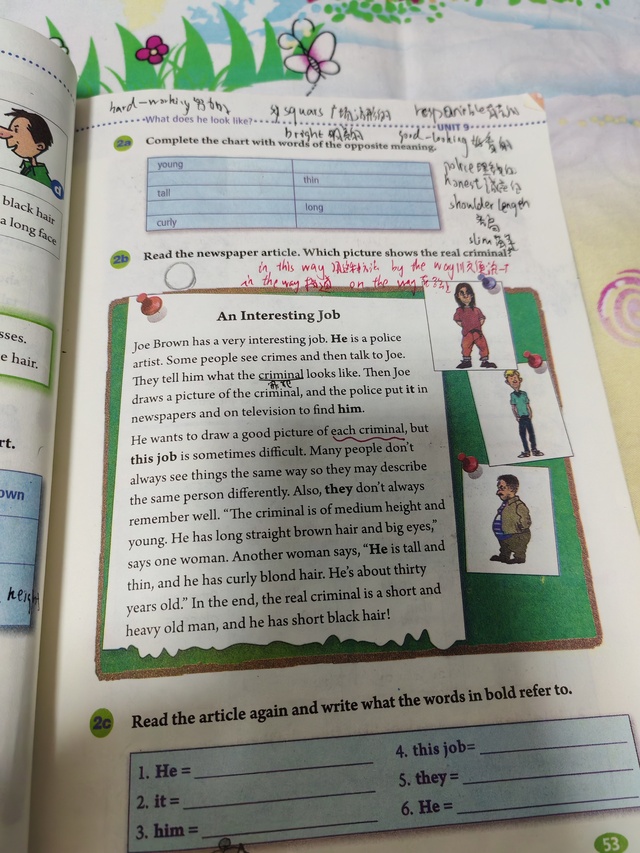 d
black hair
a long face
sses.
e hair.
rt.
own
heigh
hard-working
squars
responsible
What does he look like?
UNIT 9
bright
good-looking
2a Complete the chart with words of the opposite meaning.
police
young
honest
thin
tall
shoulder length
long
curly
slim
2b Read the newspaper article. Which picture shows the real criminal?
in this way by the way
in the way on the way
An Interesting Job
Joe Brown has a very interesting job. He is a police
artist. Some people see crimes and then talk to Joe.
They tell him what the criminal looks like. Then Joe
draws a picture of the criminal, and the police put it in
newspapers and on television to find him.
He wants to draw a good picture of each criminal, but
this job is sometimes difficult. Many people don't
always see things the same way so they may describe
the same person differently. Also, they don't always
remember well. "The criminal is of medium height and
young. He has long straight brown hair and big eyes,"
says one woman. Another woman says, "He is tall and
thin, and he has curly blond hair. He's about thirty
years old." In the end, the real criminal is a short and
heavy old man, and he has short black hair!
2c Read the article again and write what the words in bold refer to.
1. He =
2. it =
3. him =
4. this job=
5. they =
6. He =
53